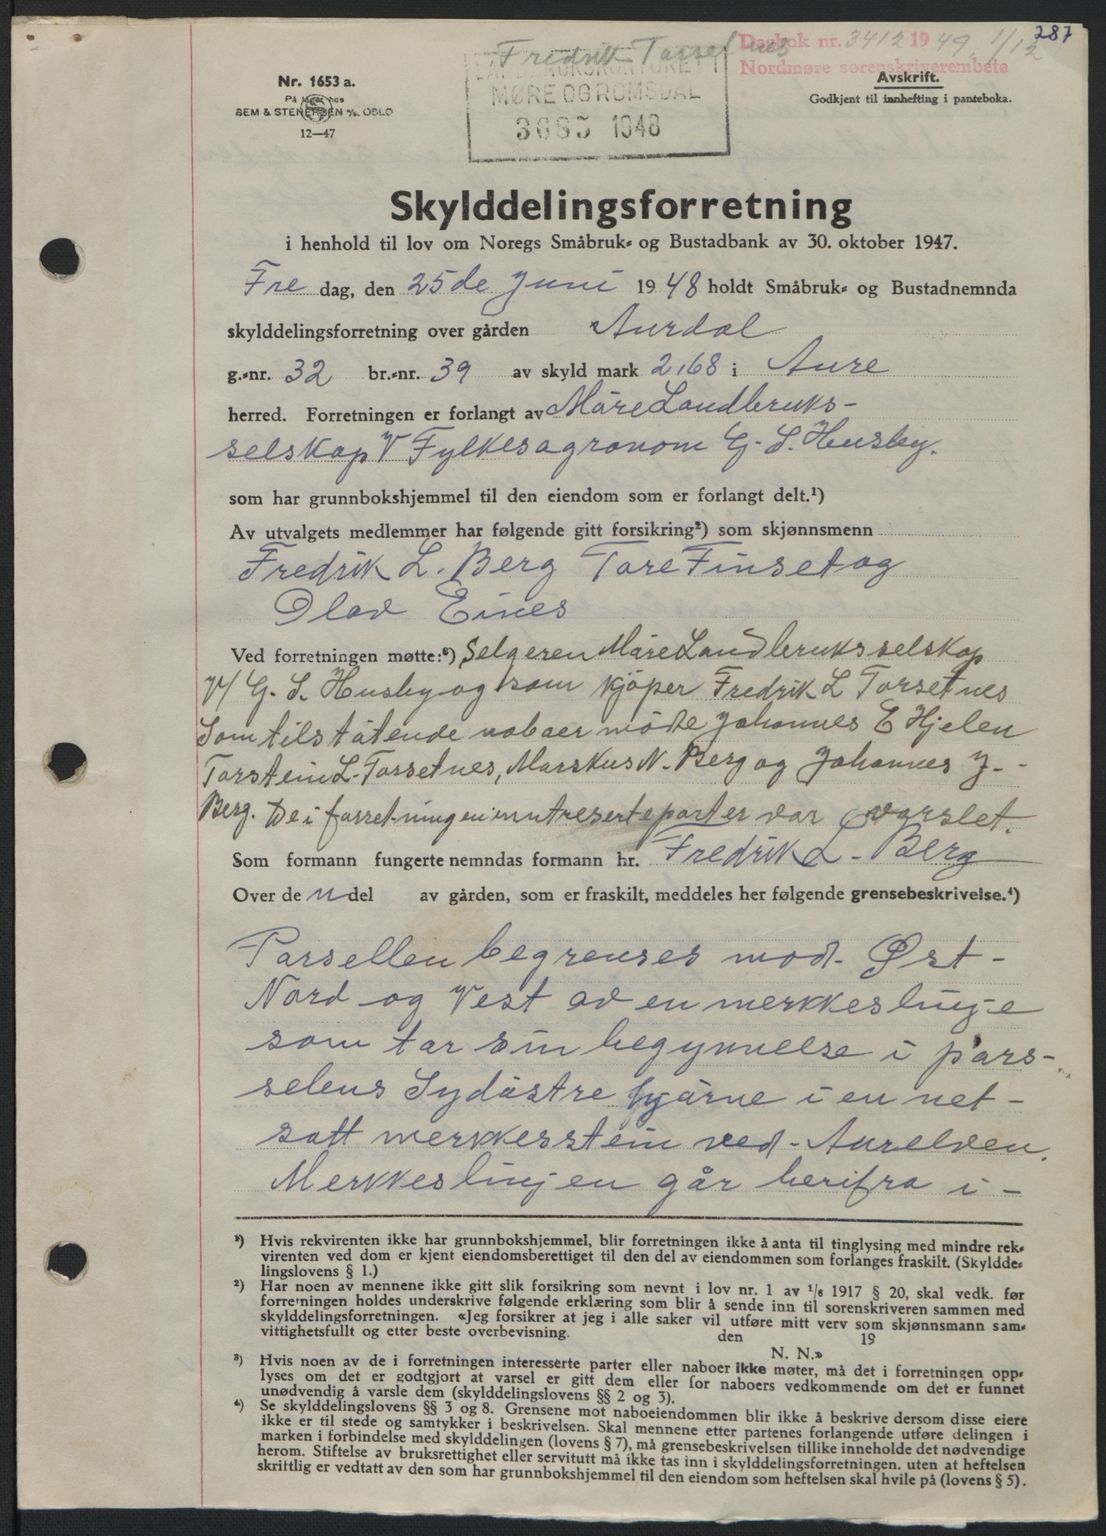 287
Fredrik Torsetnes
Dagbok nr. 3412 1949 1/12
Nordmøre sorenskriverembete
MØRE OG ROMSDAL
3695 1948
Nr. 1653 a.
SEM & STENERSEN A/S OSLO
12—47
Avskrift.
Godkjent til innhefting i panteboka.
Skylddelingsforretning
i henhold til lov om Noregs Småbruk- og Bustadbank av 30. oktober 1947.
Fre dag, den 25de Juni 1948 holdt Småbruk- og Bustadnemnda
skylddelingsforretning over gården Aurdal
g.-nr. 32 br.-nr. 39 av skyld mark 2,68 i Aure
herred. Forretningen er forlangt av Møre Landbruks-
selskap V Fylkesagronom G. S. Husby.
som har grunnbokshjemmel til den eiendom som er forlangt delt.¹)
Av utvalgets medlemmer har følgende gitt forsikring²) som skjønnsmenn
Fredrik L. Berg Tore Finset og
Olav Eines
Ved forretningen møtte:³) Selgeren Møre Landbruksselskap
V/ G. S. Husby og som kjøper Fredrik L Torsetnes
Som tilstøtende naboer møtte Johannes E Hjelen
Torstein L. Torsetnes, Marskus N. Berg og Johannes J. -
Berg. De i forretningen inntreserte parter var varslet.
Som formann fungerte nemndas formann hr. Fredrik L. Berg
Over de n del av gården, som er fraskilt, meddeles her følgende grensebeskrivelse.⁴)
Parsellen begrenses mod. Øst -
Nord og Vest av en merkkeslinje
som tar sin begynnelse i pars-
selens Sydøstre hjørne i en net-
satt merkkesstein ved - Aurelven.
Merkkeslinjen går herifra i -
¹) Hvis rekvirenten ikke har grunnbokshjemmel, blir forretningen ikke å anta til tinglysing med mindre rek-
virenten ved dom er kjent eiendomsberettiget til den del av eiendommen som forlanges fraskilt. (Skyldde-
lingslovens § 1.)
²) Har noen av mennene ikke gitt slik forsikring som nevnt i lov nr. 1 av 1/6 1917 § 20, skal vedk. før
forretningen holdes underskrive følgende erklæring som blir å sende inn til sorenskriveren sammen med
skylddelingsforretningen. «Jeg forsikrer at jeg i alle saker vil utføre mitt verv som skjønnsmann sam-
vittighetsfullt og etter beste overbevisning. den 19
N. N.»
³) Hvis noen av de i forretningen interesserte parter eller naboer ikke møter, må det i forretningen opp-
lyses om det er godtgjort at varsel er gitt dem eller for naboers vedkommende om det er funnet
unødvendig å varsle dem (skylddelingslovens §§ 2 og 3).
⁴) Se skylddelingslovens §§ 3 og 8. Grensene mot naboeiendommen blir ikke å beskrive dersom disse eiere
ikke er til stede og samtykker i beskrivelsen. Skal mennene etter partenes forlangende utføre delingen i
marken i forbindelse med skylddelingen (lovens § 7), må grensebeskrivelsen tillike inneholde det nødvendige
herom. Stiftelse av bruksrettighet eller servitutt må ikke tas inn i skylddelingsforretningen. uten at heftelsen
skrittlig er vedtatt av den som har grunnbokshjemmel til den eiendom som heftelsen skal hvile på (lovens § 5).